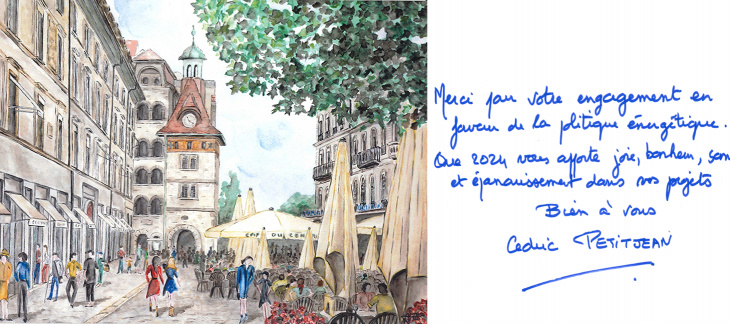 CAFÉ DU CEN
Merci pour votre engagement en
faveur de la politique énergétique.
Que 2024 vous apporte joie, bonheur, san
et épanouissement dans vos projets
Bien à vous
Cedric PETITJEAN